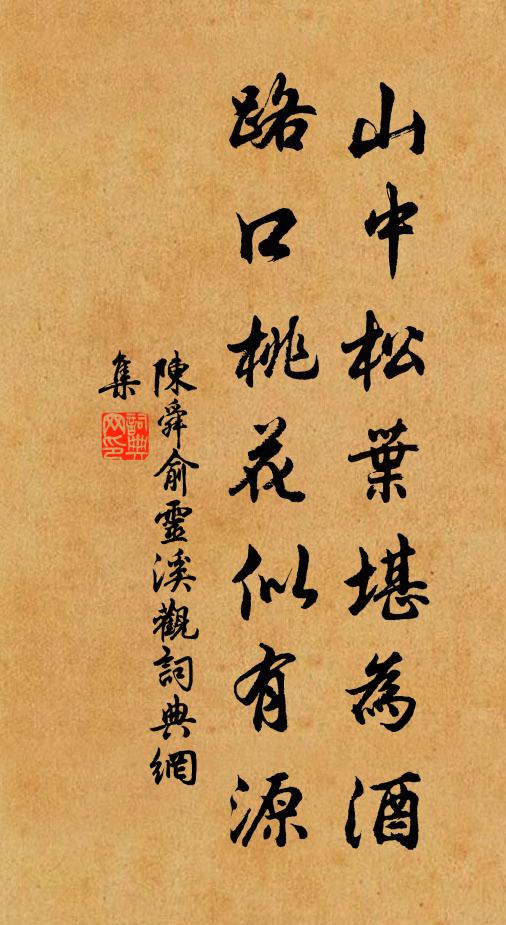 山中松葉堪為酒
路口桃花似有源
陳舜俞靈溪觀詞典網
集
詞典
网印